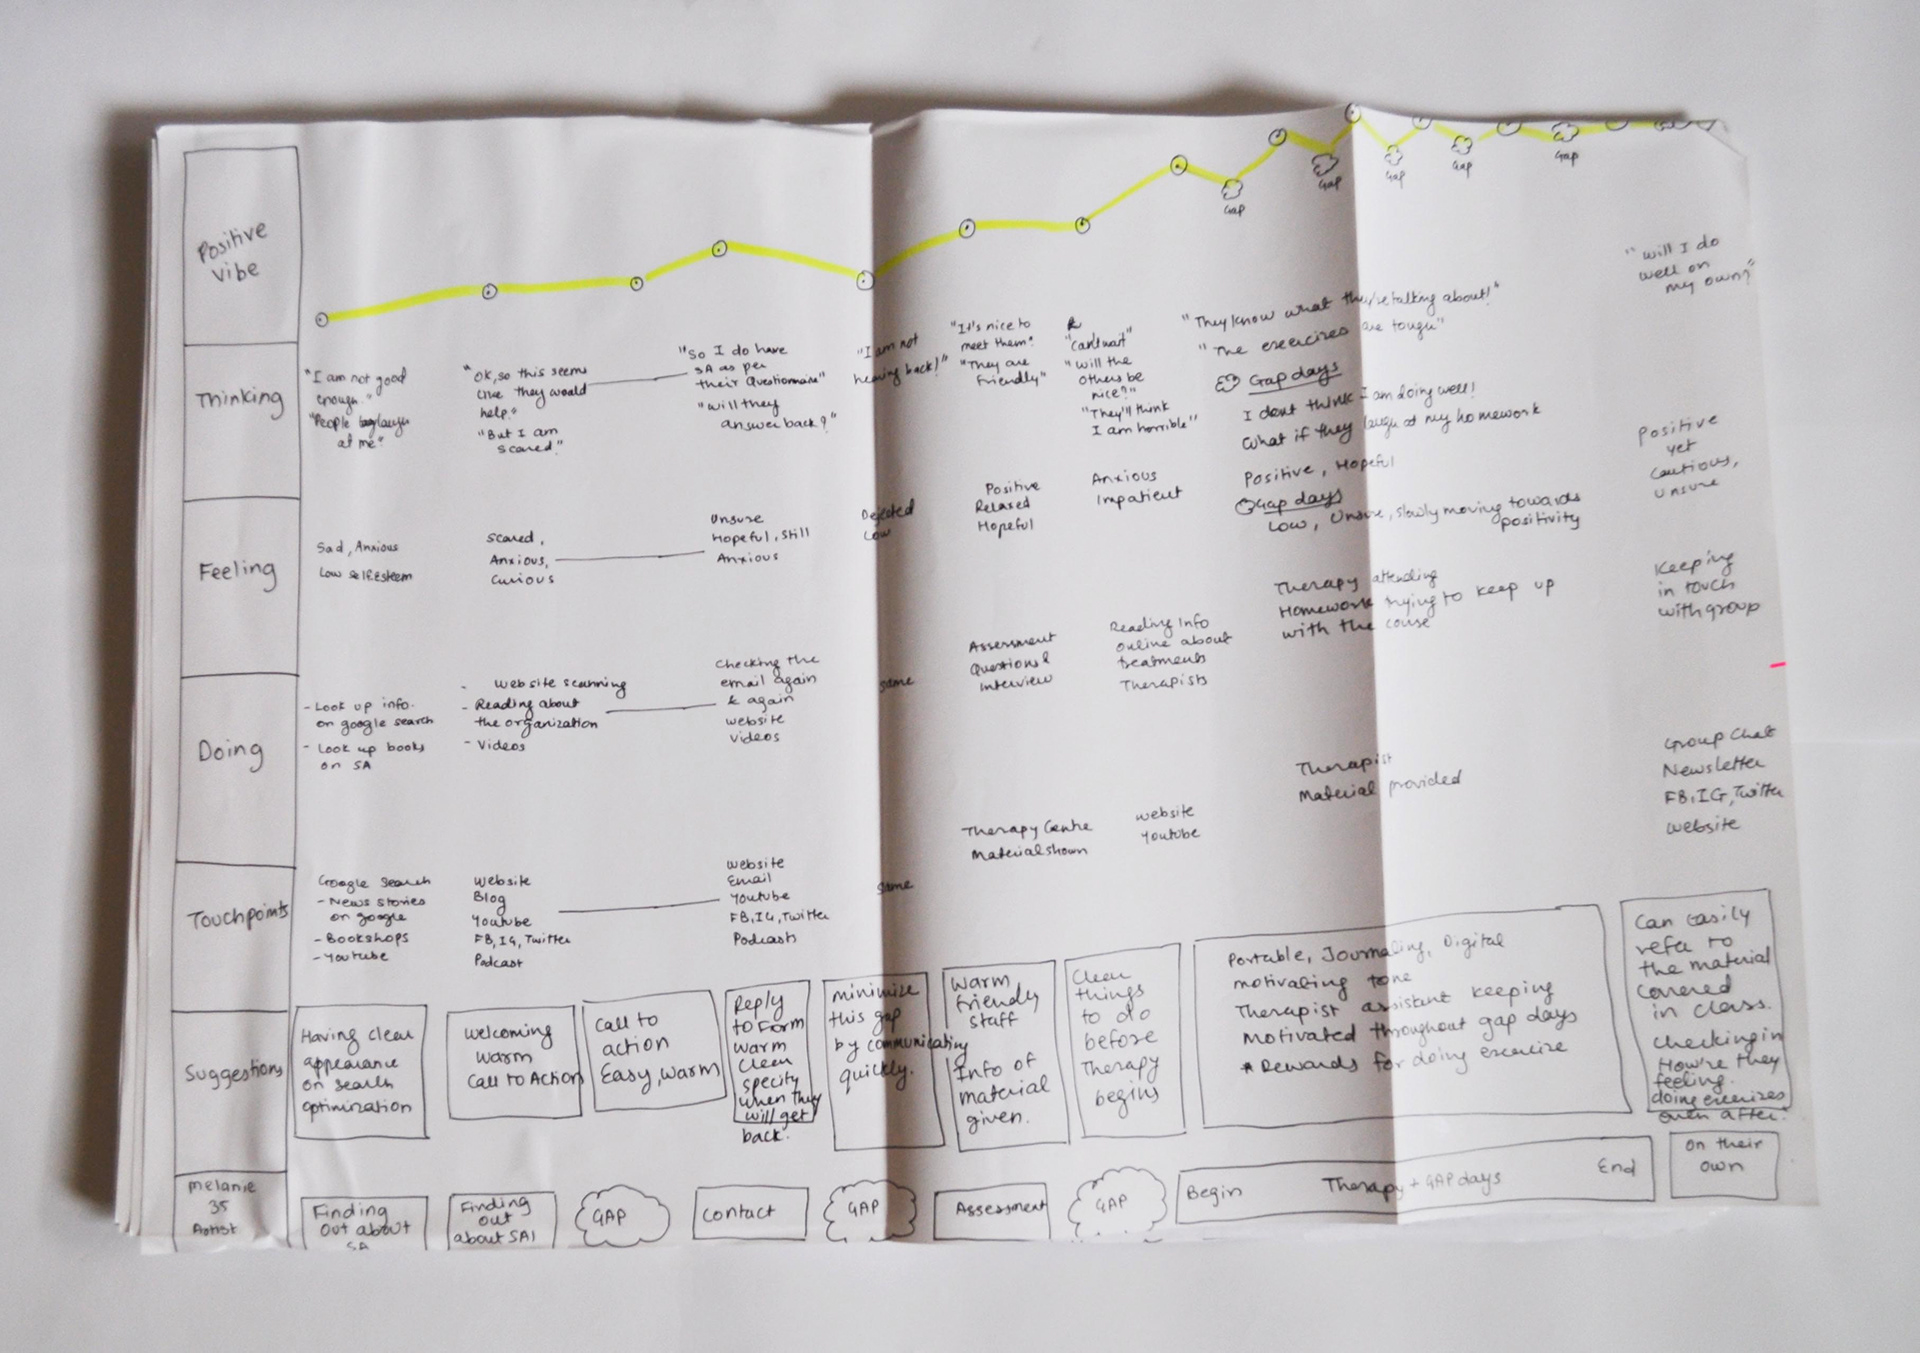 Positive
vibe
Gap
Gap
Gap
Gap
Gap
Thinking
"I am not good
enough."
"People laugh
at me."
"OK, so this seems
like they would
help."
"But I am
scared."
"So I do have
SA as per
their Questionnaire"
"will they
answer back?"
"I am not
hearing back!"
"It's nice to
meet them."
"They are
friendly"
"Can't wait"
"will the
others be
nice?"
"They'll think
I am horrible"
"They know what they're talking about!"
"The exercises are tough"
Gap days
I dont think I am doing well!
What if they laugh at my homework
"will I do
well on
my own?"
Feeling
Sad, Anxious
Low selfesteem
Scared,
Anxious,
Curious
Unsure
Hopeful, still
Anxious
Dejected
Low
Positive
Relaxed
Hopeful
Anxious
Impatient
Positive, Hopeful
Gap days
Low, Unsure, slowly moving towards
positivity
Positive
yet
Cautious,
Unsure
Doing
- Look up info.
on google search
- Look up books
on SA
- Website scanning
- Reading about
the organization
- Videos
Checking the
email again
& again
website
videos
same
Assessment
Questions &
Interview
Reading Info
online about
treatments
Therapists
Therapy attending
Homework trying to keep up
with the course
Keeping
in touch
with group
Touchpoints
Google Search
- News stories
on google
- Bookshops
- Youtube
Website
Blog
Youtube
FB, IG, Twitter
Podcast
Website
Email
Youtube
FB, IG, Twitter
Podcasts
same
Therapy Centre
Material shown
website
Youtube
Therapist
Material provided
Group Chat
Newsletter
FB, IG, Twitter
Website
Suggestions
Having clear
appearance
on search
optimization
Welcoming
warm
Call to Action
Call to
action
Easy, warm
Reply
to Form
warm
clear
specify
when they
will get
back.
minimize
this gap
by communicating
quickly.
Warm
friendly
staff
Info of
material
given.
Clear
things
to do
before
Therapy
begins
Portable, Journaling, Digital
motivating tone
Therapist assistent keeping
motivated throughout gap days
* Rewards for doing exercise
Can easily
refer to
the material
covered
in class.
Checking in
How're they
feeling.
doing exercizes
even after.
melanie
35
Artist
Finding
Out about
SA
Finding
out
about SAI
GAP
Contact
GAP
Assessment
GAP
Begin Therapy + GAP days End
On their
own